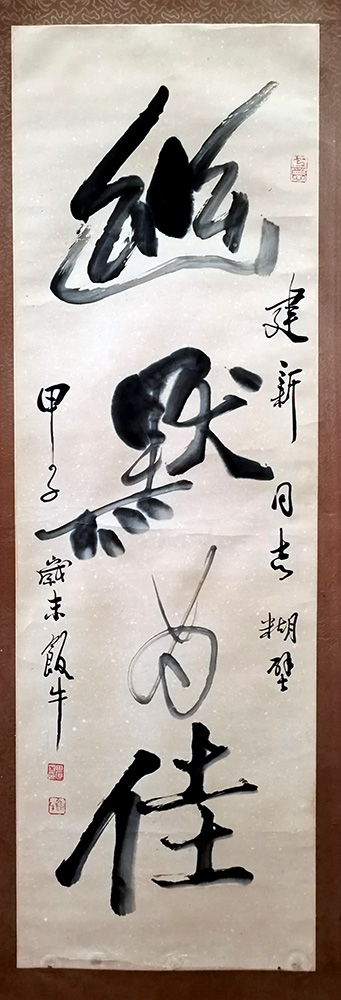 幽默为佳
建新同志糊壁
甲子歲末飯牛